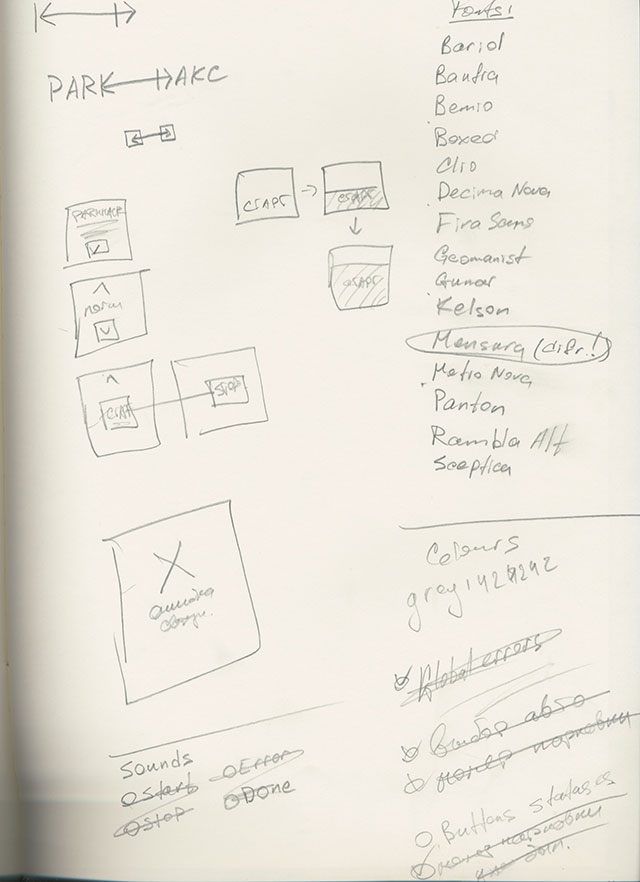 PARK AKC
PARKHACK
norm
СТАРТ
STOP
СТАРТ
СТАРТ
СТАРТ
Fonts:
Bariol
Baufra
Bemio
Boxed
Clio
Decima Nova
Fira Sans
Geomanist
Gunar
Kelson
Mensura (difr.!)
Metro Nova
Panton
Rambla Alt
Sceptica
X
ошибка
Colours
grey: 424242
Global errors
выбор авто
номер парковки
Buttons statuses
номер парковки
Sounds
Start
Error
Stop
Done